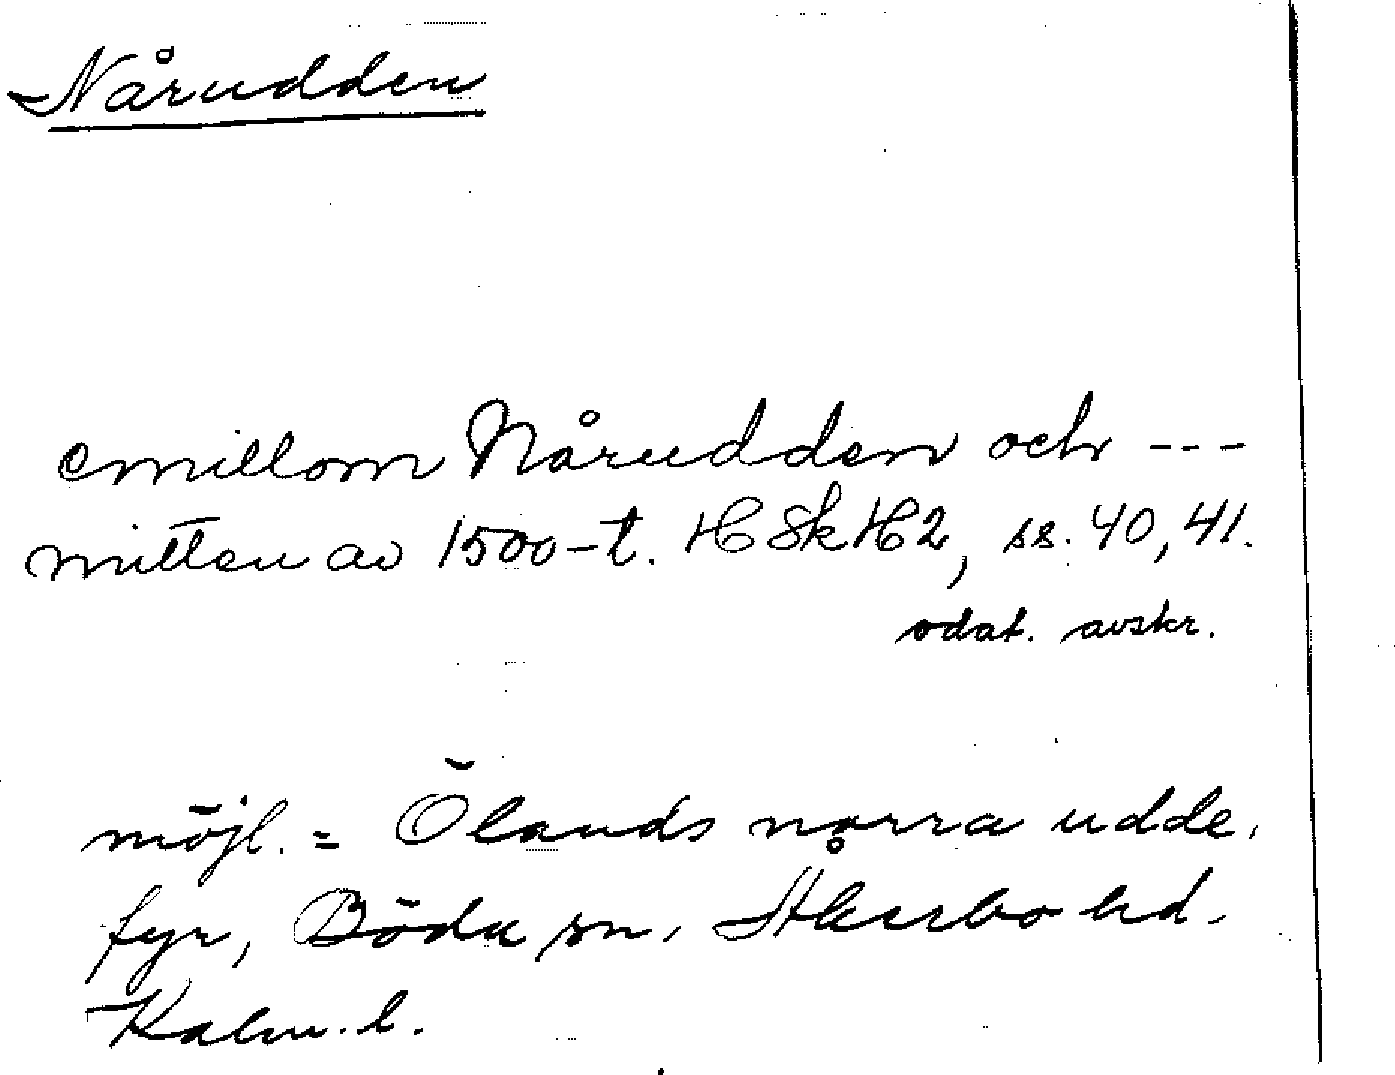 Nårudden
emillom Nårudden och ---
mitten av 1500-t. HSkH2, ss. 40, 41.
odat. avskr.
möjl. = Ölands norra udde,
fyr, Böda sn, Åkerbo hd.
Kalm. l.